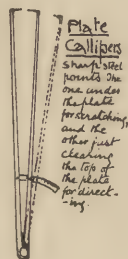 Plate
Callipers
sharp steel
points the
one under
the plate
for scratching,
and the
other just
clearing
the top of
the plate
for direct-
ing.